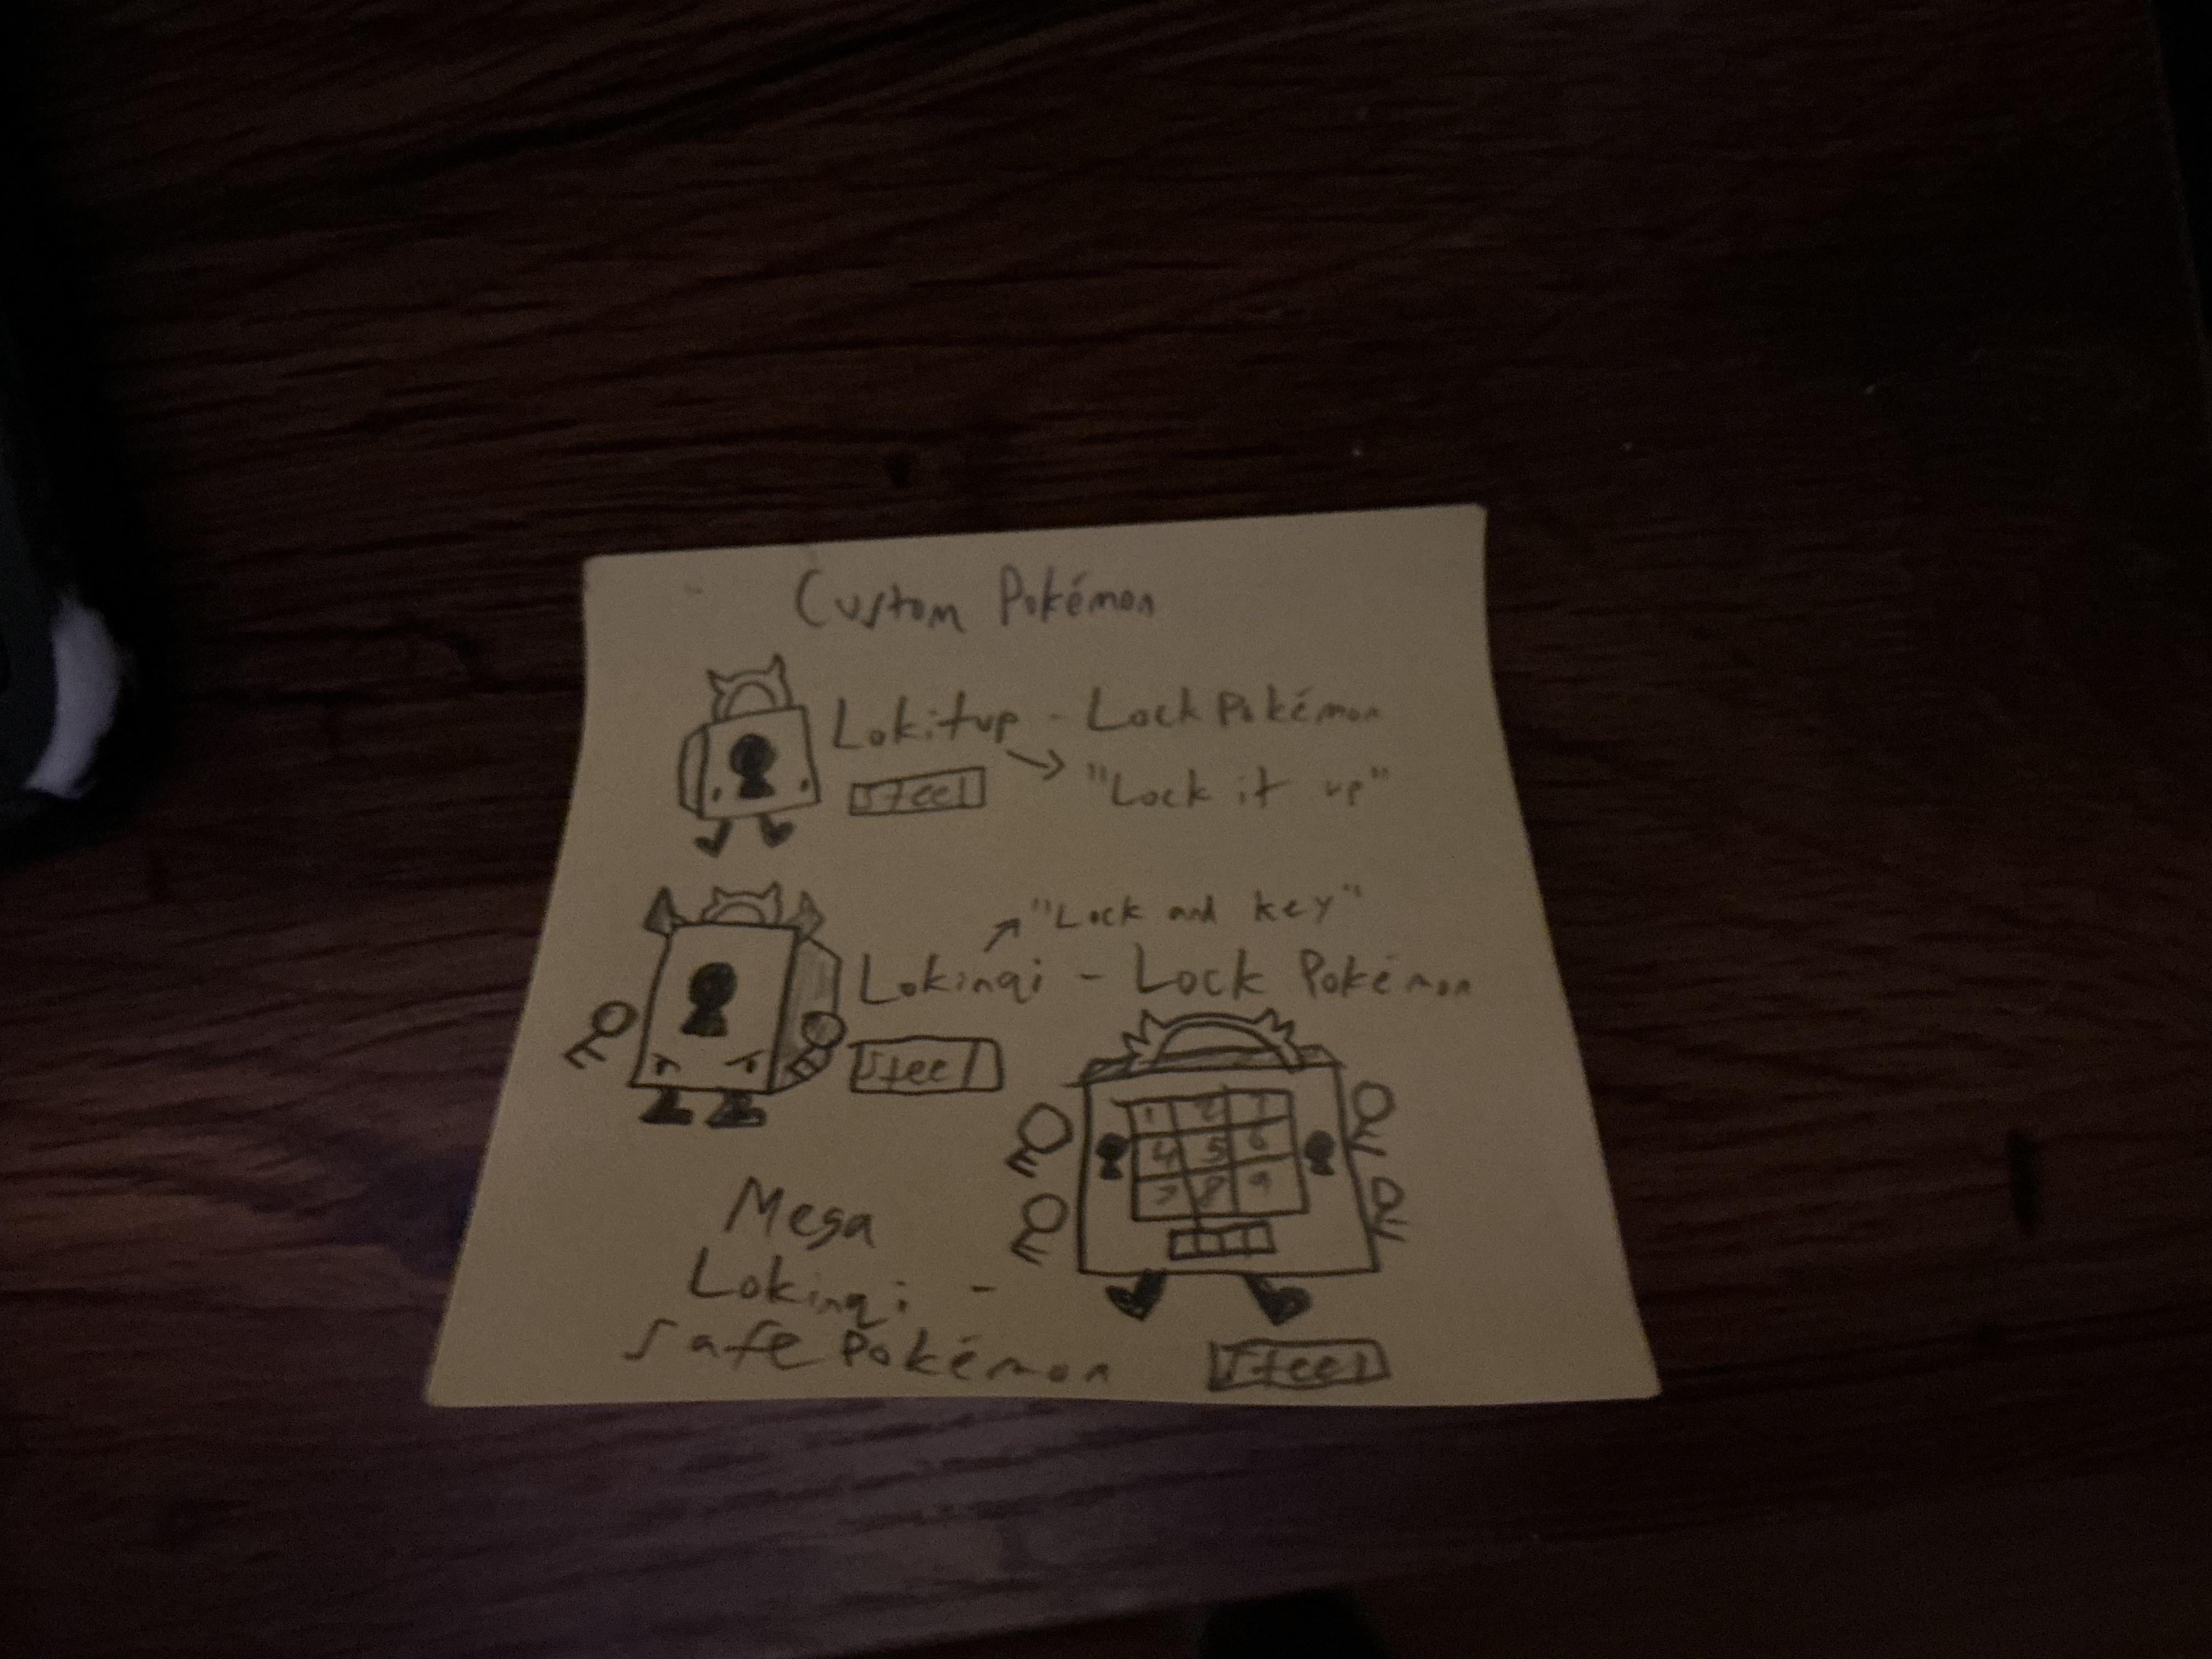 Custom Pokémon
Lokitup - Lock Pokémon
Steel
"Lock it up"
"Lock and key"
Lokinqi - Lock Pokémon
Steel
1 2 3
4 5 6
7 8 9
Mega
Lokinqi -
Safe Pokémon
Steel